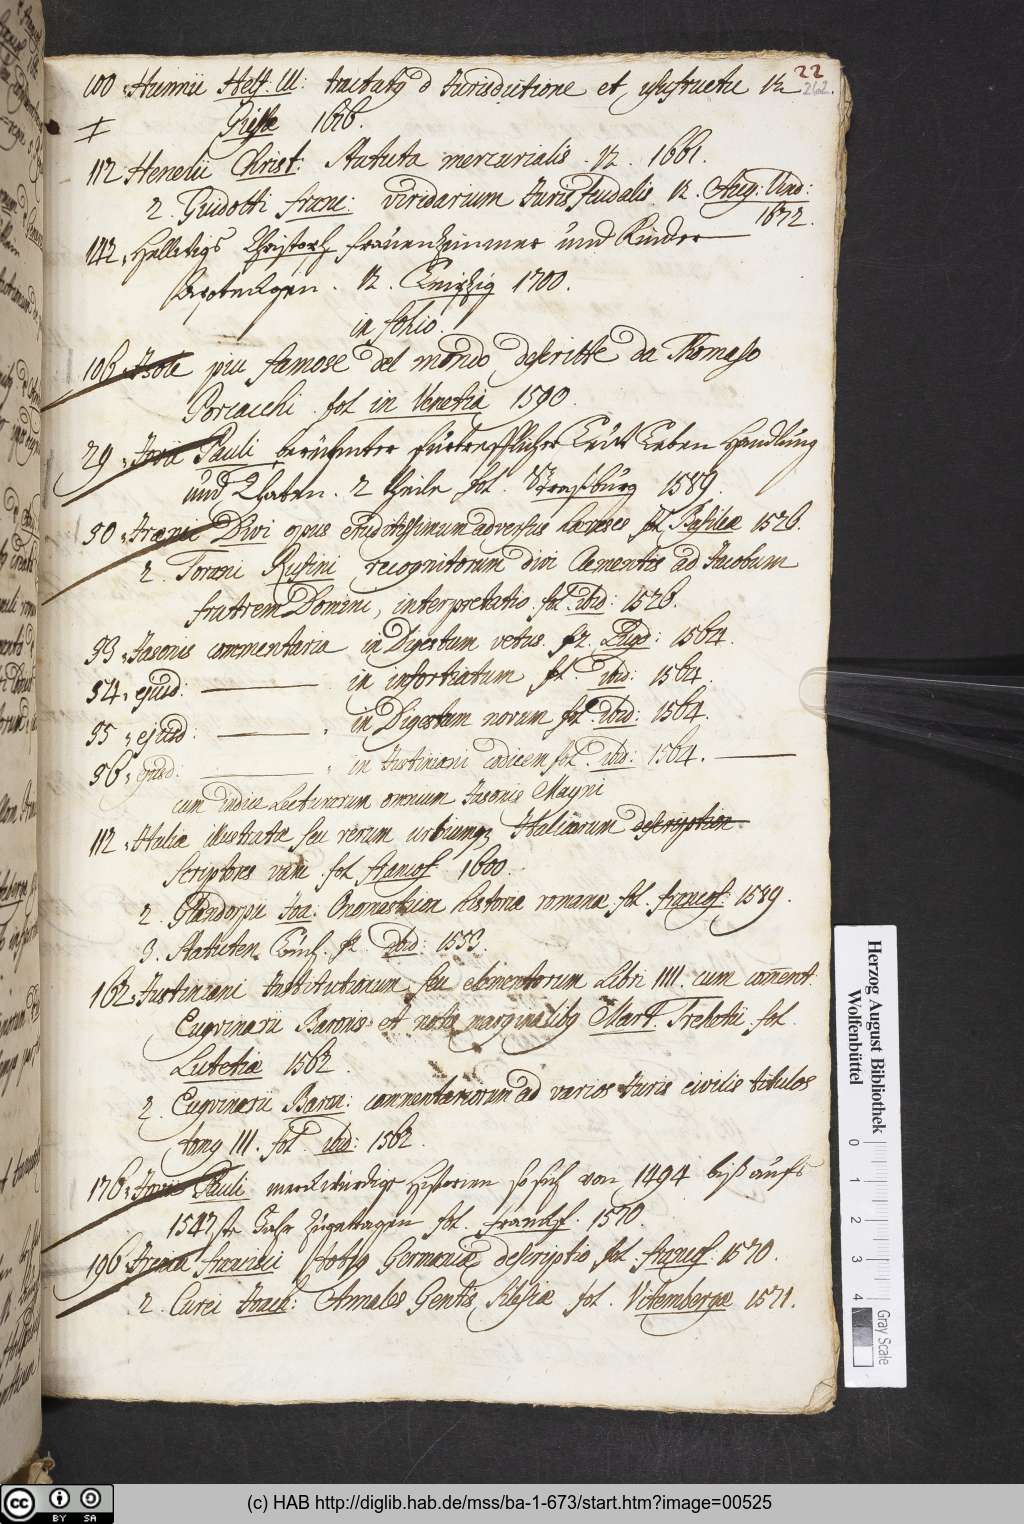 22
262.
100. Hunnii Helf. Ul: tractatq d Jurisdictione et usufructu 12.
Gissæ 1616.
112 Henelii Christ: statuta mercurialis. 12. 1661.
2. Guidotti franc: viridarium Juris feudalis. 12. Aug: Vind:
1672.
142. Hellwigs Christoph frauenzimmer und Kinder
Apotecken. 12. Leipzig 1700.
in folio.
106. Isole piu famose del mondo descritte da Thomaso
Porcacchi fol. in Venetia 1590.
29. Jovii Pauli berühmter fürtrefflicher Leüt Leben Handlung
und Thaten. 2 theile fol. Strasburg 1589.
50. Irænei Divi opus eruditissimum adversus hæreses fol. Basileæ 1526.
2. Torani Rufini recognitorum divi Clementis ad Jacobum
fratrem Domini, interpretatio. fol. ibid: 1526.
93. Jasonis commentaria in Digestum vetus. fol. Lugd: 1564.
94. ejusd: in infortiatum fol. ibid: 1564.
95. ejusd: in Digestum novum fol. ibid: 1564.
96. ejusd: in Justiniani codicem fol. ibid: 1564.
cum indice Lecturarum omnium Jasonis Mayni
112. Italiæ illustratæ seu rerum urbiumq Italicarum description
scriptores varii. fol. francof. 1600.
2. Glandorpii Joa: Onomasticon historiæ romanæ fol. francof. 1589.
3. Statuten. fol. ibid: 1553.
162. Justiniani Institutionum seu elementorum Libri IIII. cum com̄ent.
Eugvinarii Baronis et notis marginalibq Mart. fol.
Lutetiæ 1562.
2. Eugvinarii Baron: commentariorum ad varios Juris civilis titulos
tomq III. fol. ibid: 1562.
176. Jovii Pauli merckwürdige Historien so sich von 1494 biß aufs
1547ste Jahr zugetragen fol. franckf. 1570.
196. Irenici francisci totiq Germaniæ descriptio fol. francof. 1570.
2. Curei Joach: Annales Gentis Silesiæ fol. Vitembergæ 1571.
Herzog August Bibliothek
Wolfenbüttel
0 1 2 3 4
Gray Scale
cc BY SA
(c) HAB http://diglib.hab.de/mss/ba-1-673/start.htm?image=00525